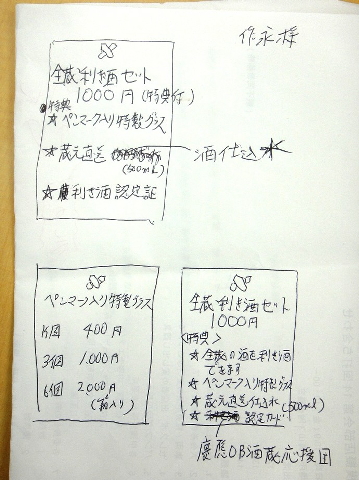 作永様
全蔵利き酒セット
1000円(特典付)
特典
☆ペンマーク入り特製グラス
☆蔵元直送
(500mL)
酒仕込水
☆利き酒認定証
ペンマーク入り特製グラス
1個 400円
3個 1,000円
6個 2,000円
(箱入り)
全蔵利き酒セット
1000円
<特典>
☆全蔵の酒を利き酒
できます
☆ペンマーク入り特製グラス
☆蔵元直送仕込水(500ml)
☆認定カード
慶應OB酒蔵応援団